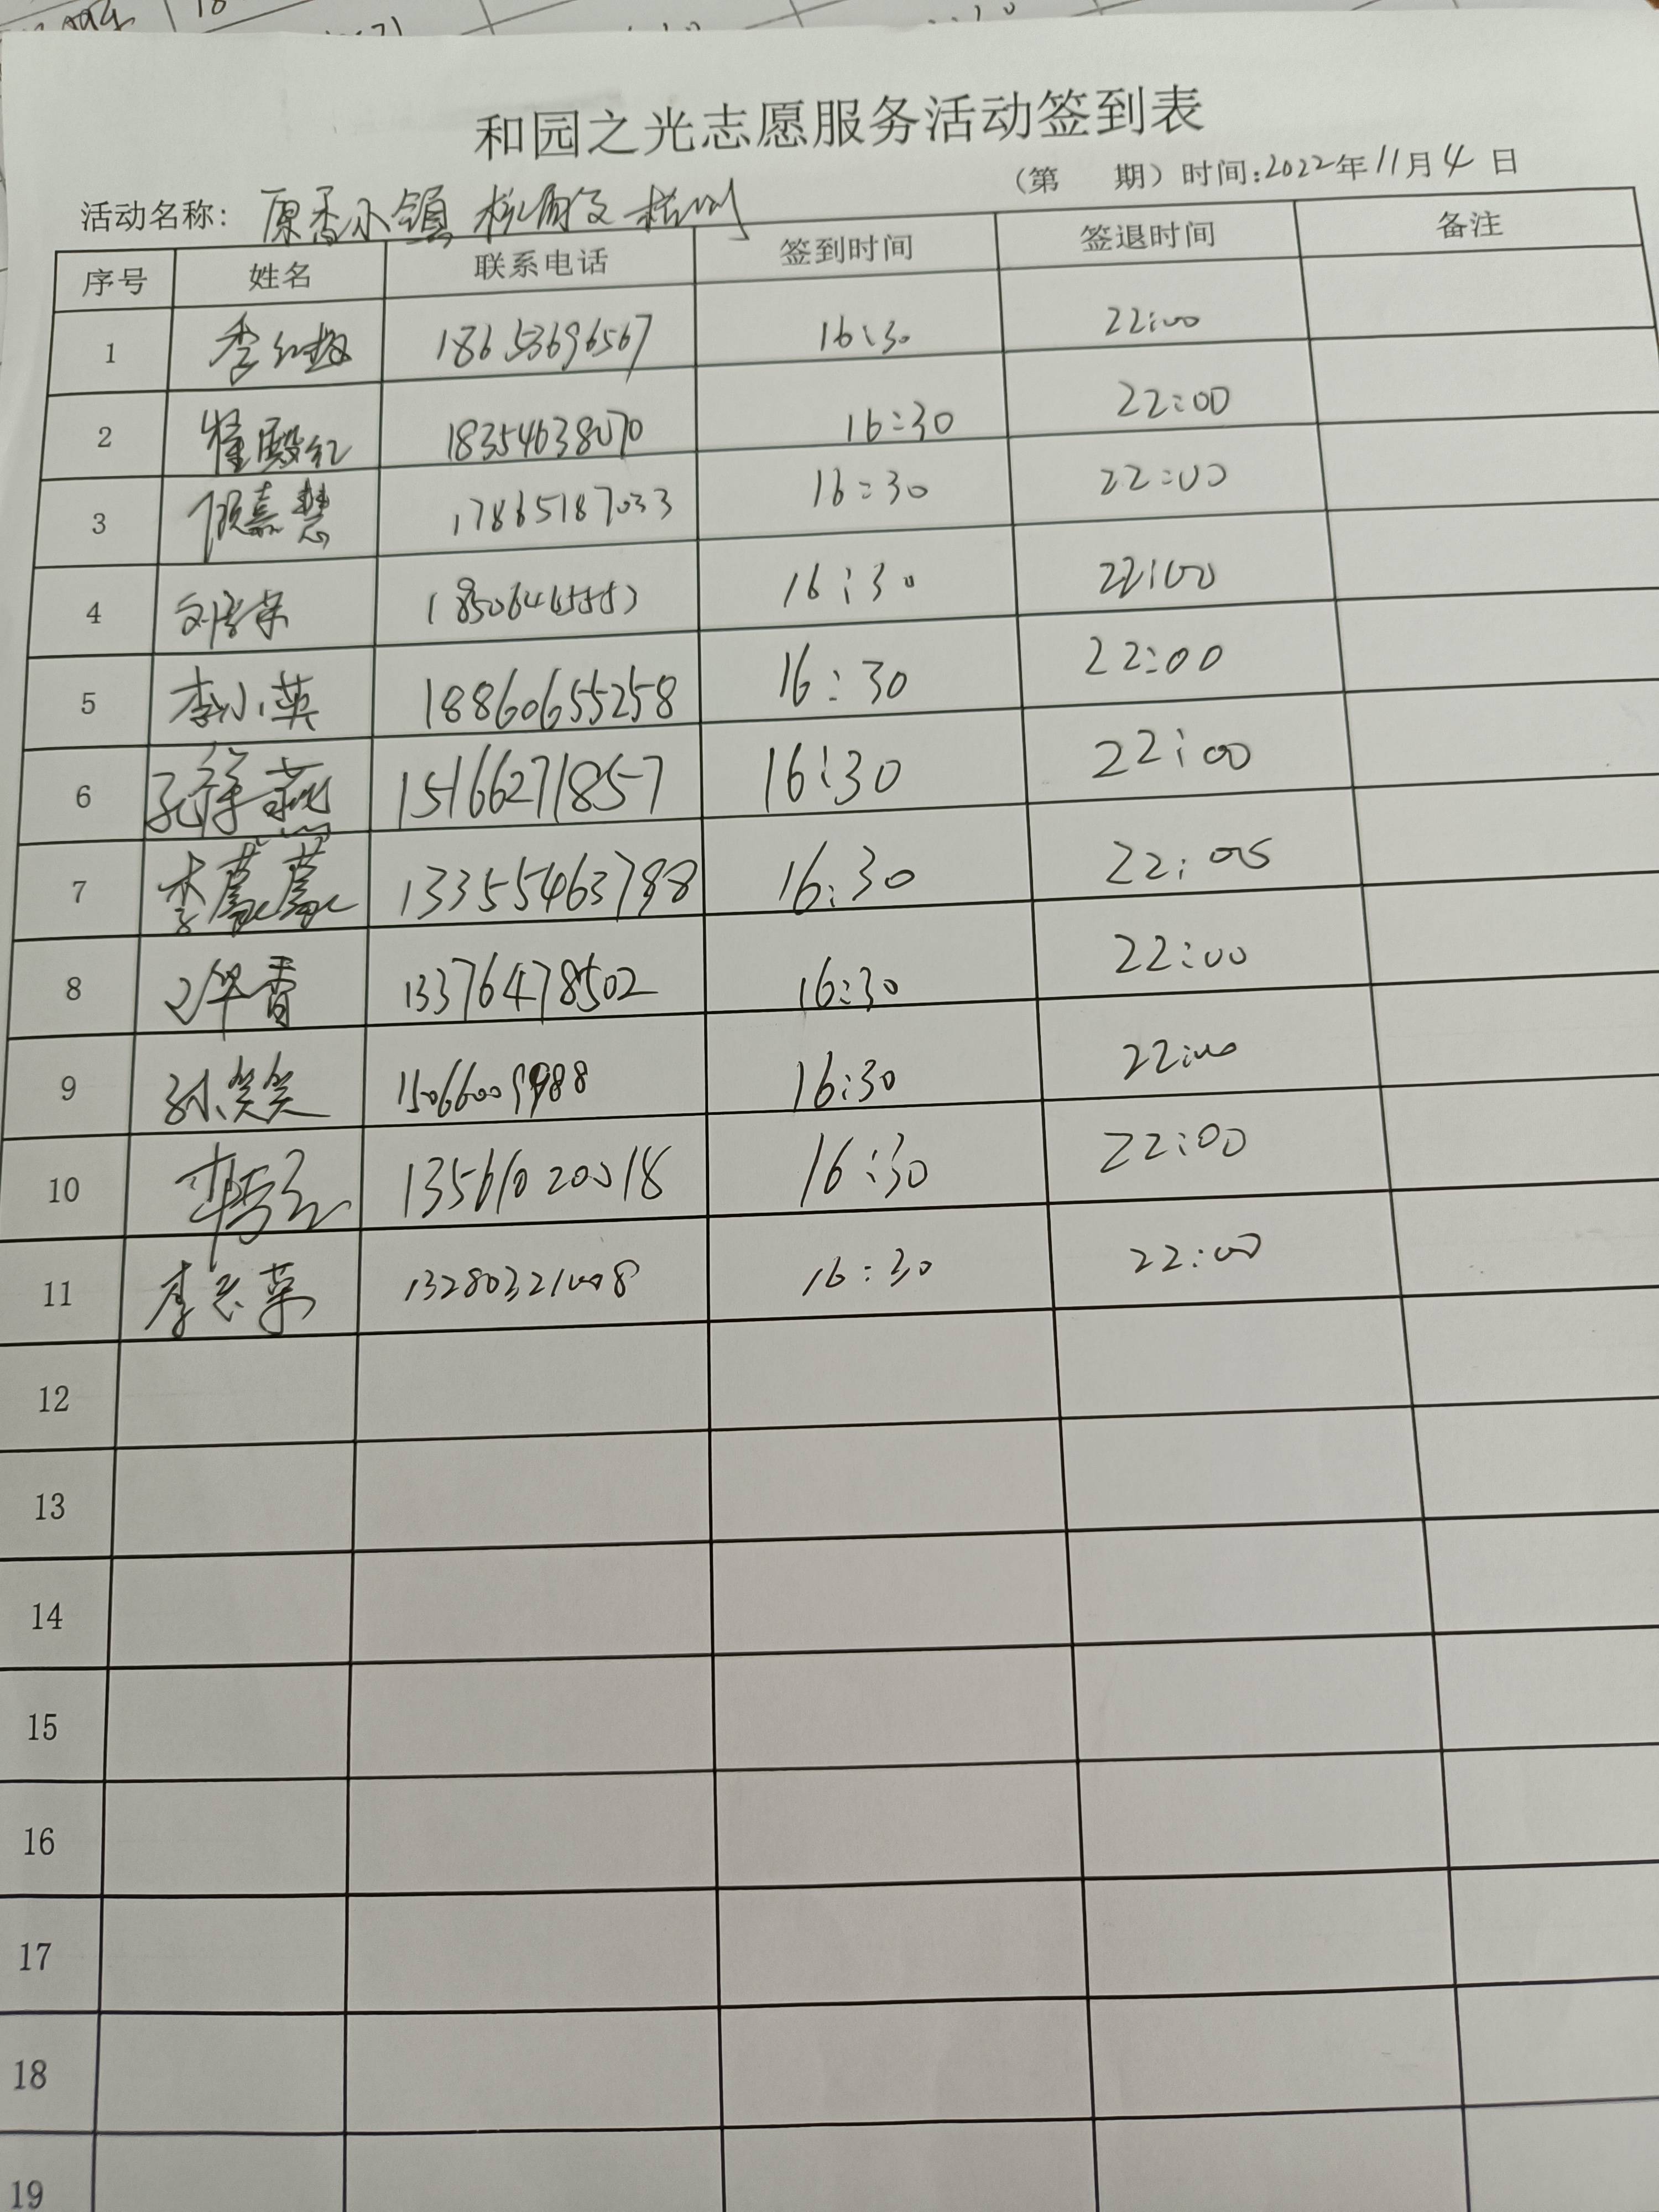 和园之光志愿服务活动签到表
(第 期)时间:2022年11月4日
活动名称: 原香小镇
序号 姓名 联系电话 签到时间 签退时间 备注
1 李红梅 18653696567 16:30 22:00
2 殿红 18354638070 16:30 22:00
3 嘉慧 17865187033 16:30 22:00
4 刘 16:30 22:00
5 李小英 18860655258 16:30 22:00
6 燕 15166271857 16:30 22:00
7 李 13355463788 16:30 22:00
8 华香 13376478502 16:30 22:00
9 孙笑笑 15066009988 16:30 22:00
10 13561020018 16:30 22:00
11 李 13280321008 16:30 22:00
12
13
14
15
16
17
18
19